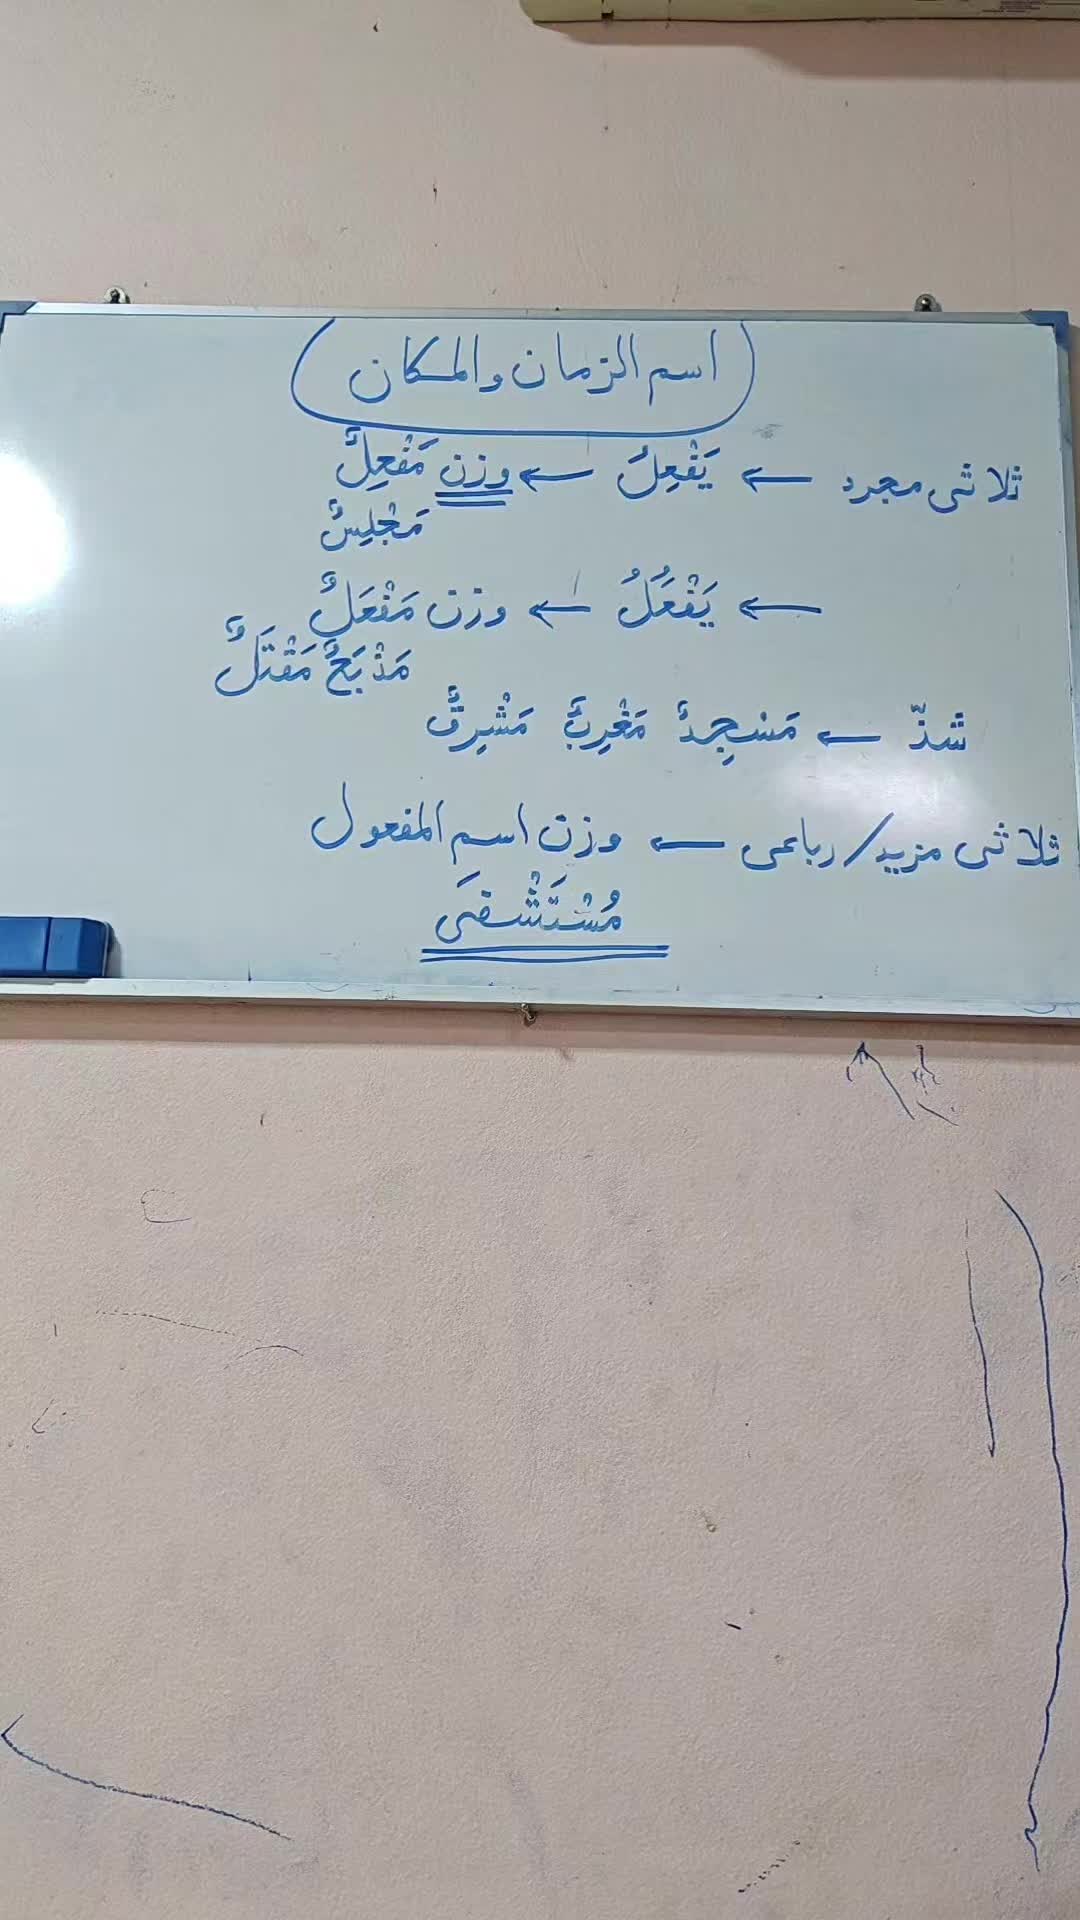 اسم الزمان والمكان
ثلاثى مجرد ← يَفْعِلُ ← وزن مَفْعِلٌ
مَجْلِسٌ
← يَفْعَُلُ ← وزن مَفْعَلٌ
مَذْبَحٌ مَقْتَلٌ
شذّ ← مَسْجِدٌ مَغْرِبٌ مَشْرِقٌ
ثلاثى مزيد/رباعى ← وزن اسم المفعول
مُسْتَشْفَى